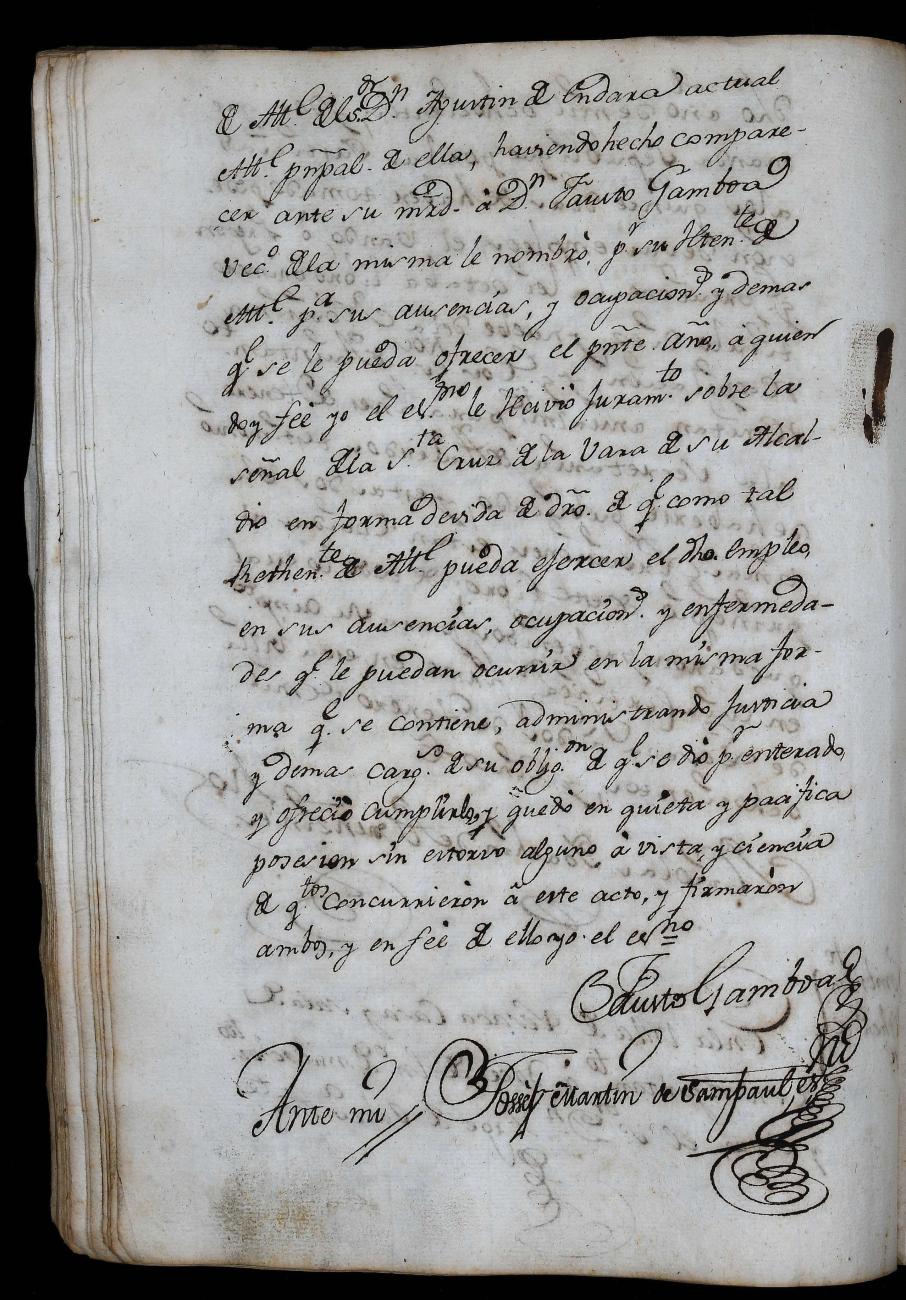 de Alc.e del s.or D.n Agustin de Endara actual
Alc.e pñpal. de ella, haviendo hecho compare-
cer ante su mrd. à D.n Fausto Gamboa
vec.o dela misma le nombrò, p.r su then.te de
Alc.e p.a sus ausencias, y ocupacion.s y demas
q.e se le pueda ofrecer el pñte. año, à quien
doy feé yo el es.no le rècivió Juram.to sobre la
señal, dela S.ta Cruz de la vara de su Alcal-
dio en forma devida de dr̃o. de q.e como tal
Rethen.te de Alc.e pueda ejercer el dho. Empleo,
en sus ausencias, ocupacion.s y enfermeda-
des q.e le puedan ocurrir en la misma for-
ma q.e se contiene, administrando Justicia
y demas carg.s de su oblig.on de q.e se diò p.r enterado,
y ofreciò cumplirlo, y quedò en quieta y pacifica
posesion sin estorvo alguno à vista, y ciencia
de q.tos concurrieron à este acto, y firmaròn
ambos, y en feé de ello yo el esno
Fausto Gamboa
Ante mi Josseph Martin de Sampaul, es.no